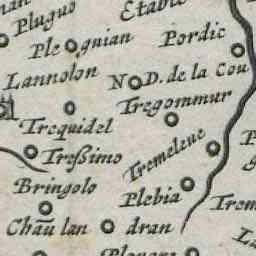 Pluguo
Etable
Plegnian
Pordic
Lannolon
N D. de la Cou
Tregommur
Trequidel
Treßimo
Tremeleuc
Bringolo
Plebia
Trem
Chau lan dran